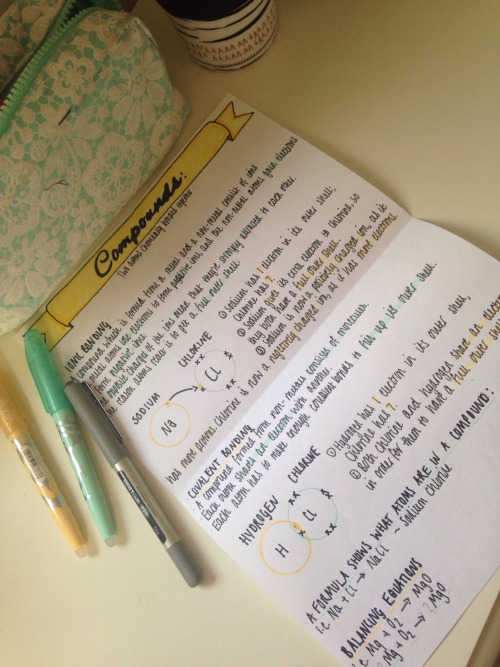 Compounds:
Two atoms chemically bonded together
IONIC BONDING
A compound which is formed from a metal and a non-metal consists of ions
Metal atoms lose electrons to form positive ions, and the non-metal atoms gain electrons
to form negative ions.
The opposite charges of the ions mean that they're strongly attracted to each other.
Each atoms react is to get a full outer shell.
SODIUM
CHLORINE
Na
Cl
① Sodium has 1 electron in its outer shell,
Chlorine has 7.
② Sodium gives its extra electron to chlorine, so
they both have a full outer shell.
③ Sodium is now a positively charged ion, as it
has more protons. Chlorine is now a negatively charged ion, as it has more electrons.
COVALENT BONDING
A compound formed from non-metals consists of molecules.
Each atom shares an electron with another
Each atom has to make enough covalent bonds to fill up its outer shell.
HYDROGEN
CHLORINE
H
Cl
① Hydrogen has 1 electron in its outer shell,
Chlorine has 7.
② Both chlorine and hydrogen share an
in order for them to have a full outer
A FORMULA SHOWS WHAT ATOMS ARE IN A COMPOUND:
i.e. Na + Cl → NaCl ~ Sodium chloride
BALANCING EQUATIONS
i.e. Mg + O₂ → MgO
Mg + O₂ → 2MgO